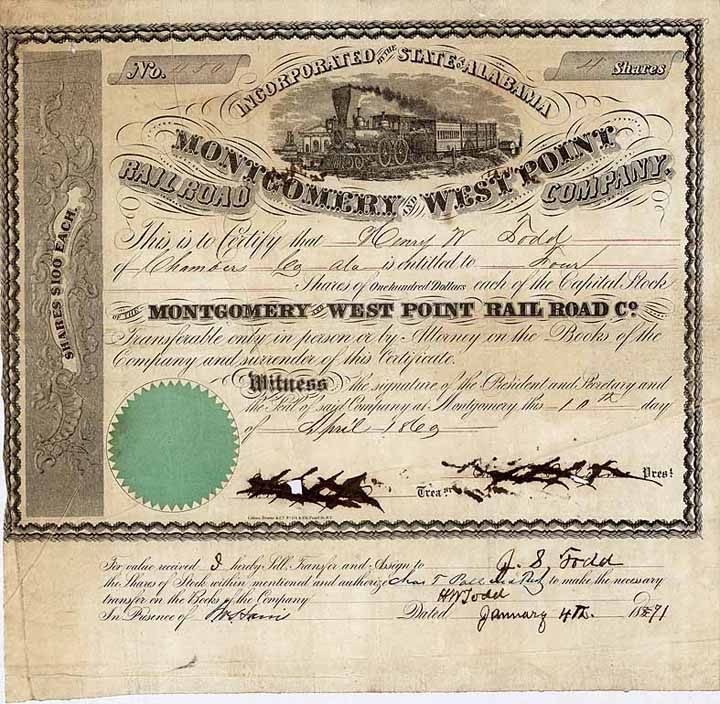 No. 450 4 Shares
INCORPORATED BY THE STATE OF ALABAMA
MONTGOMERY AND WEST POINT
RAIL ROAD COMPANY.
SHARES $100 EACH
This is to Certify that Henry W Todd
of Chambers Co Ala is entitled to Four
Shares of One hundred Dollars each of the Capital Stock
OF THE MONTGOMERY AND WEST POINT RAIL ROAD Co.
Transferable only in person or by Attorney in the Books of the
Company and surrender of this Certificate.
Witness the signature of the President and Secretary and
the Seal of said Company at Montgomery this 10th day
of April 1869
Treas Prest
For value received I hereby Sell Transfer and Assign to J. S. Todd
the Shares of Stock within mentioned and authorize Chas T to make the necessary
transfer on the Books of the Company H W Todd
In Presence of Dated January 4th. 1871